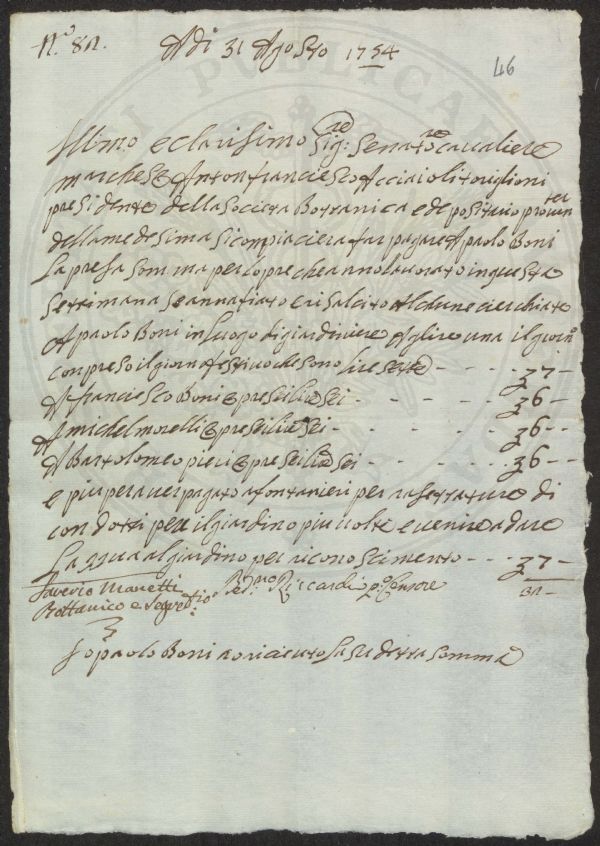 N.º 82. Adi 31 Agosto 1754
46
Illmo e clarisimo Sig:re Senatore Cavaliere
marchese Antonfranciesco Acciaioli toriglioni
presidente della Societa Bottanica e depositario proven
della medesima si compiaciera far pagare A paolo Boni
la presa somma per lopre che anno lavorato in questa
settimana se annafiato e risalcito Alchune cierchiate
A paolo Boni in luogo di giardiniere A glire una il giorno
conpreso il giorno festivo che sono lire sette - - - - 37 -
A franciesco Boni 6 pre si lire sei - - - - - 36 - -
A michel morelli 6 pre si lire sei - - - - - 36 - -
A Bartolomeo pieri 6 pre si lire sei - - - - - 36 - -
e piu per aver pagato a fontanieri per raserrature di
condotti per il giardino piu volte e venire a dare
La aqua al giardino per riconoscimento - - - - 37 -
Saverio Manetti Riccardi p.º Censore 32 -
Bottanico e Segret.rio
Io paolo Boni o riceuto la su detta somma